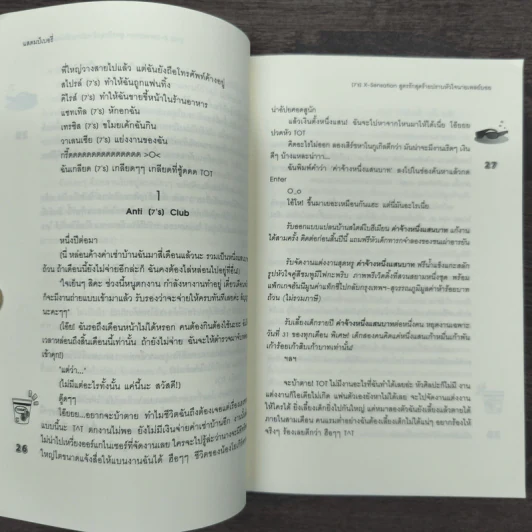 แสตมป์เบอรี่
พี่ใหญ่วางสายไปแล้ว แต่ฉันยังถือโทรศัพท์ค้างอยู่
สไปรส์ (7's) ทำให้ฉันถูกแฟนทิ้ง
คิโรส์ (7's) ทำให้ฉันขายขี้หน้าในร้านอาหาร
แชทเทิล (7's) หักอกฉัน
เทรซิล (7's) ขโมยเค้กฉันกิน
วาเลนเซีย (7's) แย่งงานของฉัน
กรี๊ดดดดดดดดดดดดดด >O<
ฉันเกลียด (7's) เกลียดๆๆ เกลียดที่สู้ดดด TOT
1
Anti (7's) Club
หนึ่งปีต่อมา
(นี่ หล่อนค้างค่าเช่าบ้านฉันมาสี่เดือนแล้วนะ รวมเป็นหนึ่งแสน
ถ้าเดือนนี้ยังไม่จ่ายอีกล่ะก็ ฉันคงต้องไล่หล่อนไปอยู่ที่อื่น!)
"ใจเย็นๆ สิคะ ช่วงนี้หนูตกงาน กำลังหางานทำอยู่ เดี๋ยวเดือน
ก็จะมีงานถ่ายแบบเข้ามาแล้ว รับรองว่าจะจ่ายให้ครบทันทีเลยค่ะ
นะคะๆๆ"
(โอ๊ย! ฉันรอถึงเดือนหน้าไม่ได้หรอก คนต้องกินต้องใช้นะยะ
เวลาหล่อนถึงสิ้นเดือนนี้เท่านั้น ถ้ายังไม่จ่าย ฉันจะให้ตำรวจมา
เข้าคุก!)
"แต่ว่า..."
(ไม่มีแต่อะไรทั้งนั้น แค่นี้นะ สวัสดี!)
ตู๊ดๆๆ
โอ้ยยย...อยากจะบ้าตาย ทำไมชีวิตฉันถึงต้องเจอแต่เรื่อง
แบบนี้นะ TAT ตกงานไม่พอ ยังไม่มีเงินจ่ายค่าเช่าบ้านอีก
26
(7's) X-Sensation สูตรรักสุดร้ายปราบหัวใจนายเพลย์บอย
น่าอัปยศอดสูนัก
แล้วเงินตั้งหนึ่งแสน! ฉันจะไปหาจากไหนมาให้ได้เนี่ย โอ้ยยย
ปวดหัว TOT
คิดอะไรไม่ออก ลองเสิร์ชหาในกูเกิลดีกว่า มันน่าจะมีงานเริ่ดๆ เงิน
ดีๆ บ้างแหละน่าาา...
27
ฉันพิมพ์คำว่า 'ค่าจ้างหนึ่งแสนบาท' ลงไปในช่องค้นหาแล้วกด
Enter
O_o
โอ้โห! ขึ้นมาเยอะเหมือนกันแฮะ แต่นี่มันอะไรเนี่ย
รับออกแบบแปลนบ้านสไตล์โบฮีเมียน ค่าจ้างหนึ่งแสนบาท แก้งาน
ได้สามครั้ง ติดต่อก่อนสิ้นปีนี้ แถมฟรีหัวเด็ก
รับจัดงานแต่งงานสุดหรู ค่าจ้างหนึ่งแสนบาท ฟรีน้ำแข็งแกะสลัก
รูปหัวใจคู่สีชมพูมีไฟกะพริบ ภาพพรีเวดดิ้งที่สวนสยามหนึ่งชุด พร้อม
แพ็กเกจฮันนีมูนค่าแท็กซี่ไปกลับกรุงเทพฯ-สุวรรณภูมิมูลค่าห้าร้อยบาท
ถ้วน (ไม่รวมภาษี)
รับเลี้ยงเด็กรายปี ค่าจ้างหนึ่งแสนบาทต่อหนึ่งคน หยุดงานเฉพาะ
วันที่ 31 ของทุกเดือน พิเศษ! เด็กสองคนคิดแค่หนึ่งแสนเก้าหมื่นเก้าพัน
เก้าร้อยเก้าสิบเก้าบาทเท่านั้น!
ฯลฯ
จะบ้าตาย! TOT ไม่มีงานอะไรที่ฉันทำได้เลยย่ะ หัวศิลปะก็ไม่มี งาน
แต่งงานก็ไอเดียไม่เกิด แฟนตัวเองยังหาไม่ได้เลย จะไปจัดงานแต่งงาน
ให้ใครได้ ยิ่งเลี้ยงเด็กยิ่งไปกันใหญ่ แค่หมาสองตัวฉันยังเลี้ยงแล้วตายได้
ภายในสามเดือน คนแรมทำอย่างฉันต้องเลี้ยงเด็กไม่ได้แน่ๆ อยากร้องไห้
จริงๆ ร้องเลยดีกว่า ฮือๆๆ TAT